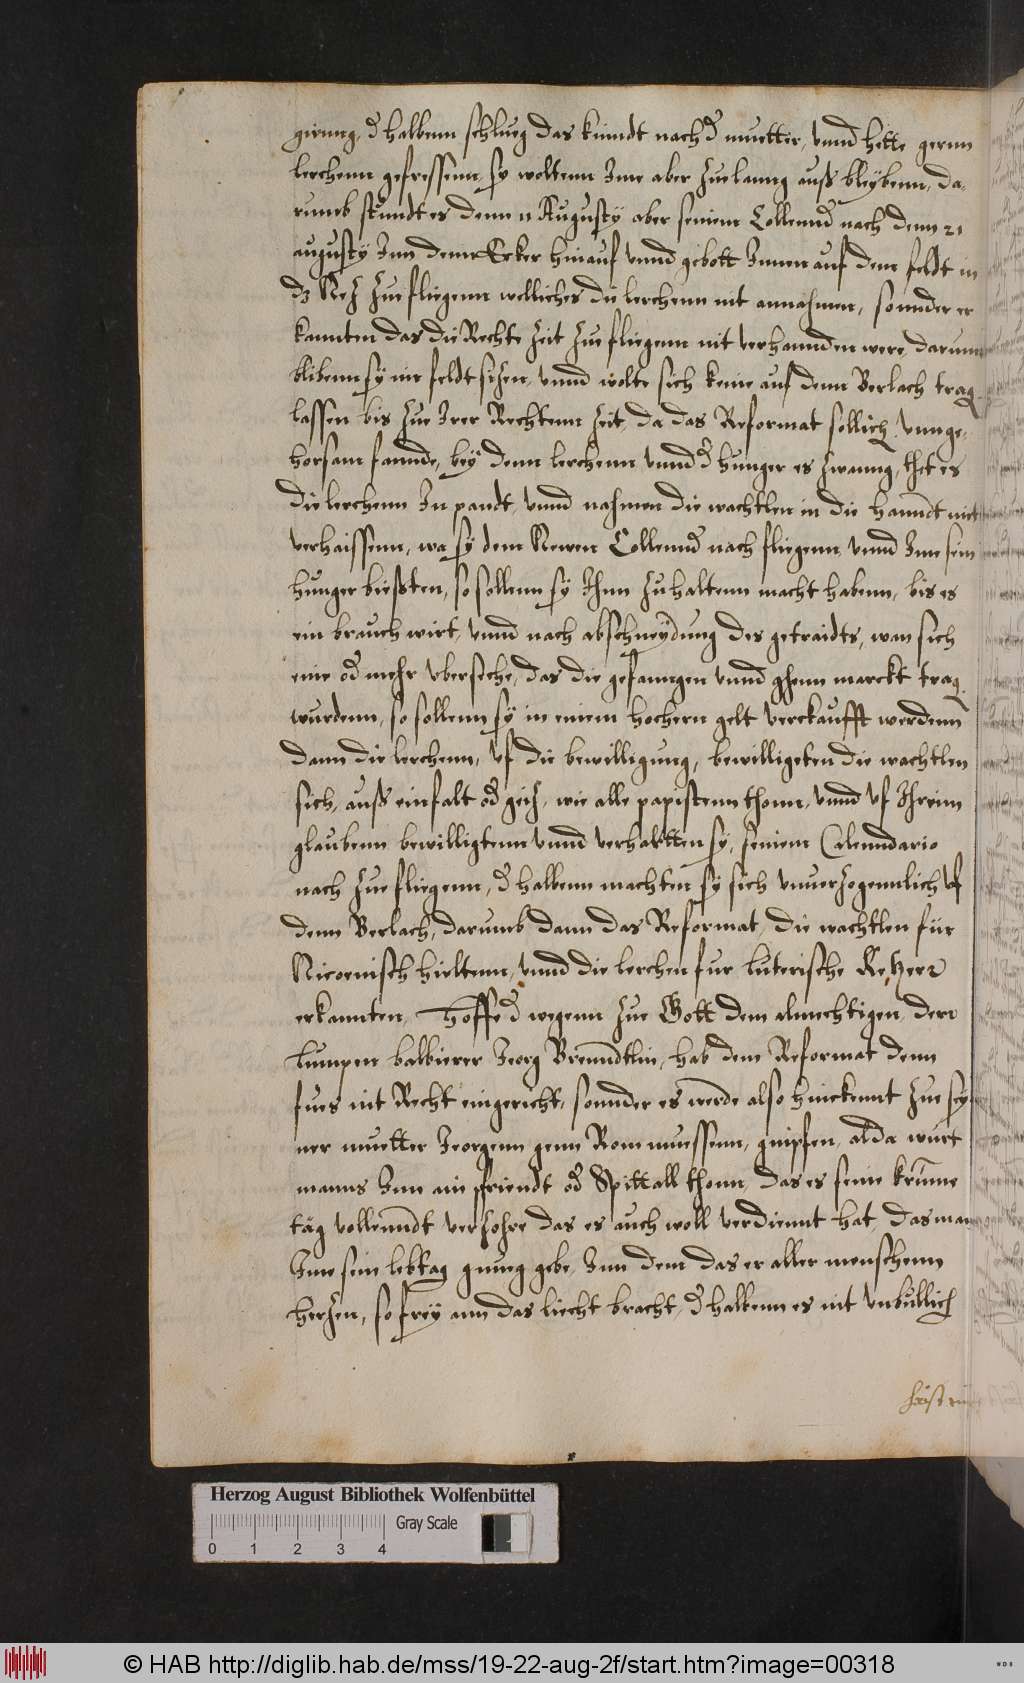 girung, dhalbenn schlueg das kindt nach d muetter, unnd hette gernn
lerchenn gefressenn, sy woltenn Ime aber zue lanng auß bleybenn, da,
rumb stundt es denn 11 Augusty aber seinem Collennd nach denn 21
augusty Inn denn Ecker hinauf unnd gebott Innen auf dem feldt in
dz Nez zue fliegenn welliches die lerchenn nit annahmen, sonnder er
kannten das die Rechte Zeit zue fliegenn nit verhannden were, darumb
blibenn sy im feldt sizen, unnd wolte sich keine auf denn Berlach trag
lassen bis zue Irer Rechtenn Zeit, da das Reformat sollich unnge,
horsam fannde, bey denn lerchenn unnd d hunger es zwanng, thet es
die lerchenn In pandt, unnd nahmen die wachtlen in die hanndt mit
verhaissenn, wa sy dem Newen Collennd nach fliegenn unnd Ime sein
hunger biesten, so sollenn sy Ihnn zuhaltenn macht habenn, bis es
ein brauch wirt, unnd nach abschneydung des getraidts, wan sich
eine od mehr ubersehe, das die gefanngen unnd ghenn marckt trag
wurdenn, so sollenn sy in einem hochern gelt verkaufft werdenn
dann die lerchenn, uf die bewilligung, bewilligeten die wachtlen
sich, auß einfalt od geiz, wie alle papistenn thonn, unnd uf Ihrenn
glaubenn bewilligtenn unnd verhaktten sy, seinem Calenndario
nach zue fliegenn, dhalbenn machten sy sich unuerzogennlich uf
denn Berlach, darumb dann das Reformat, die wachtlen für
Nicoenisch hieltenn, unnd die lerchen fur luterische Rezeer
erkannten. Hoffe d wegenn zue Gott dem almechtigen, derr
lumpen balbierer Jeorg Brenndtlin, hab dem Reformat denn
fues nit Recht eingericht, sonnder es werde also hinckennt zue sey
ner muetter Jeorgenn genn Rom muessenn, gnipfen, alda wurt
manns Inn ain pfriendt od Spittall thonn, das es seine krume
täg vollenndt verzohre das es auch woll verdiennt hat, das man
Ime sein lebtag gnueg gebe, Inn dem das er aller menschenn
herzen, so frey ann das liecht bracht, dhalbenn es nit unbillich
Herzog August Bibliothek Wolfenbüttel
Gray Scale
0 1 2 3 4
© HAB http://diglib.hab.de/mss/19-22-aug-2f/start.htm?image=00318